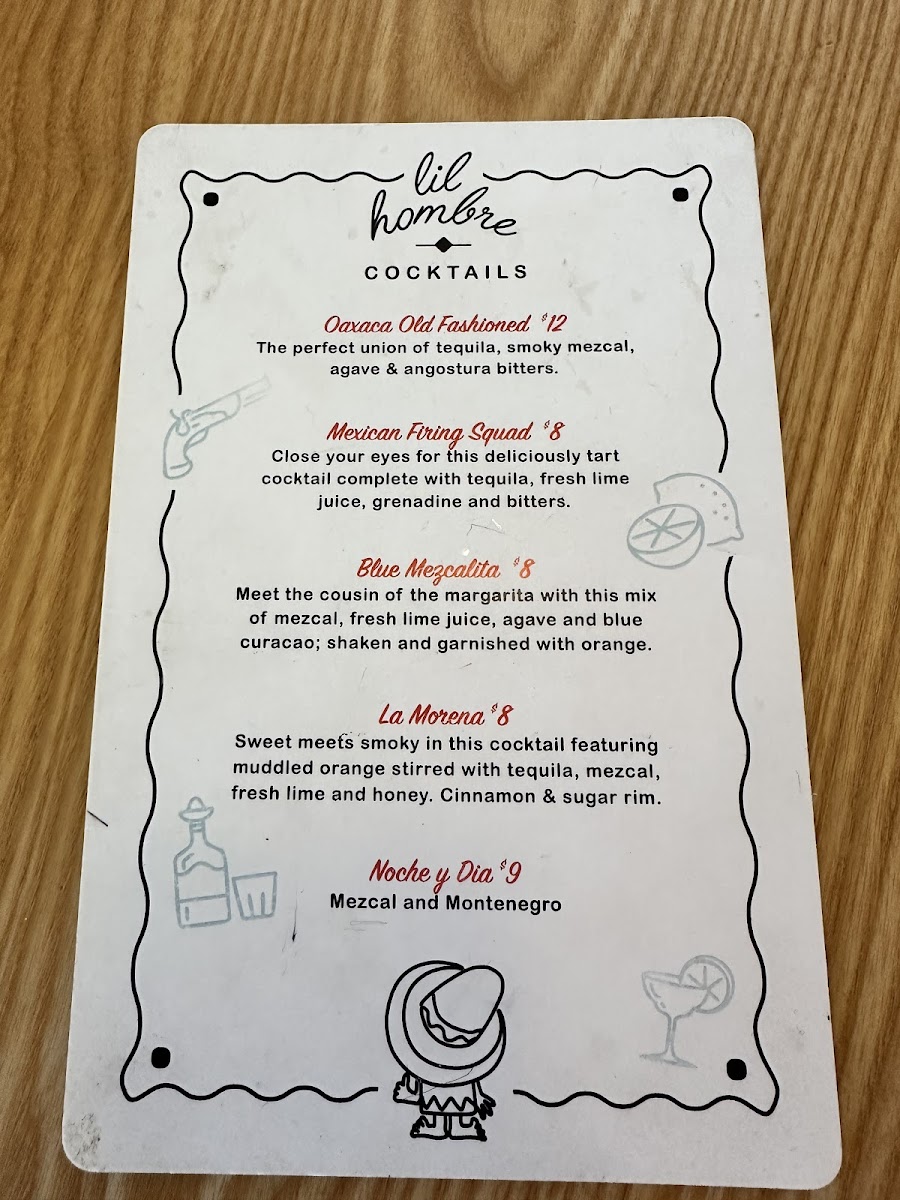 lil
hombre
COCKTAILS
Oaxaca Old Fashioned $12
The perfect union of tequila, smoky mezcal,
agave & angostura bitters.
Mexican Firing Squad $8
Close your eyes for this deliciously tart
cocktail complete with tequila, fresh lime
juice, grenadine and bitters.
Blue Mezcalita $8
Meet the cousin of the margarita with this mix
of mezcal, fresh lime juice, agave and blue
curacao; shaken and garnished with orange.
La Morena $8
Sweet meets smoky in this cocktail featuring
muddled orange stirred with tequila, mezcal,
fresh lime and honey. Cinnamon & sugar rim.
Noche y Dia $9
Mezcal and Montenegro